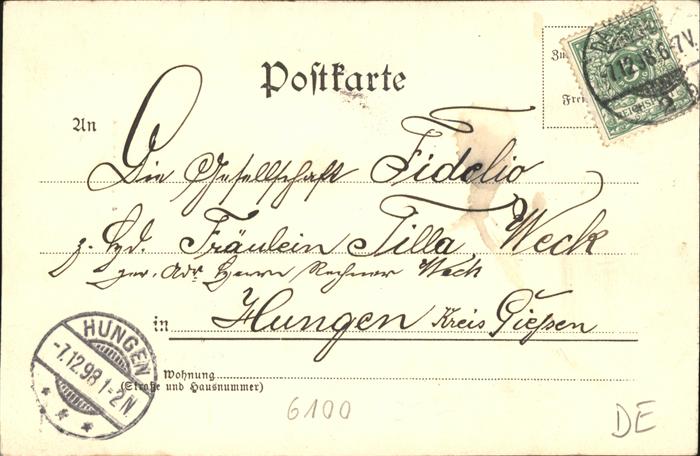 Postkarte
An
Die Gesellschaft Fidelio
z. Hd. Fräulein Tilla Weck
per. Adr. Herrn Rechner Weck
in Hungen Kreis Gießen
Wohnung
(Straße und Hausnummer)
Zu
Frei
7.12.98.6-7V.
REICHSPOST
HUNGEN
-7.12.98 1-2N
6100
DE